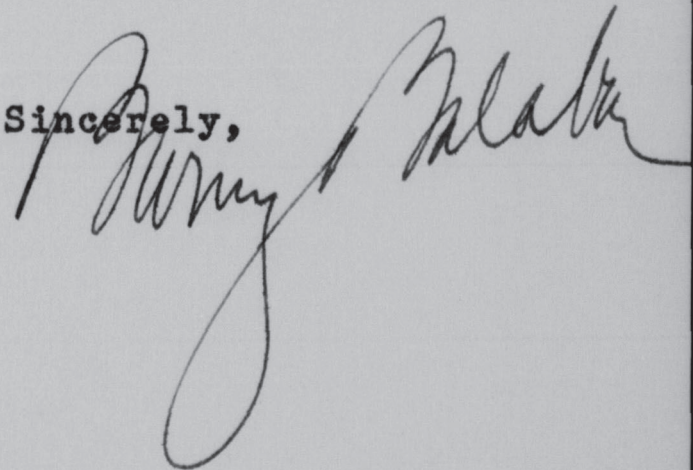 Sincerely,
Barney Balaban